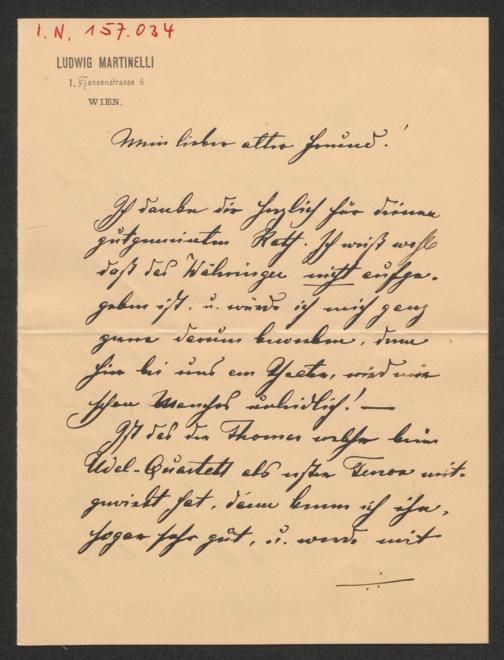 I. N. 157.034
LUDWIG MARTINELLI
I. Hansenstrasse 6.
WIEN.
Mein lieber alter Freund!
Ich danke dir herzlich für deinen
gutgemeinten Rath. Ich weiß wohl
daß das Währinger nicht aufge-
geben ist. u. würde ich mich ganz
gerne darum bewerben, denn
hier bei uns am Theater, wird mir
schon Manches unleidlich! —
Ist das der Thomas welcher beim
Udel-Quartett als erster Tenor mit-
gewirkt hat, dann kenne ich ihn,
sogar sehr gut, u. werde mit